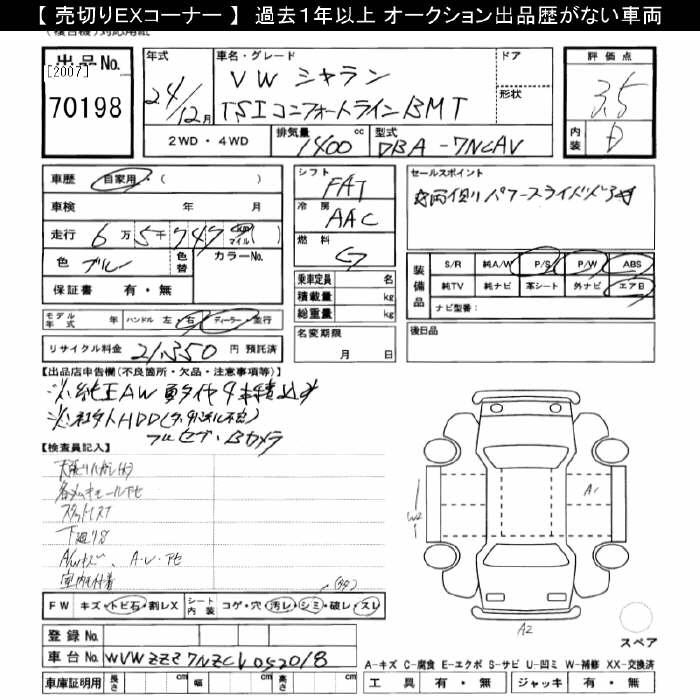 【 売切りEXコーナー 】 過去1年以上 オークション出品歴がない車両
出品No.
[2007]
70198
年式
24/12月
車名・グレード
VW シャラン
TSIコンフォートラインBMT
ドア
形状
評価点
3.5
内装
D
2WD・4WD
排気量
1400 cc
型式
DBA-7NCAV
車歴
自家用・( )
車検 年 月
走行 6万5千747 km マイル ( )
色 ブルー
色替
カラーNo.
保証書 有・無
シフト
FAT
冷房
AAC
燃料
G
乗車定員 名
積載量 kg
総重量 kg
セールスポイント
両側パワースライドドア
装備品
S/R 純A/W P/S P/W ABS
純TV 純ナビ 革シート 外ナビ エアB
ナビ型番:
モデル年式 年
ハンドル 左・右
ディーラー・並行
名変期限
月 日
後日品
リサイクル料金 21,350 円 預託済
【出品店申告欄(不良箇所・欠品・注意事項等)】
※純正AW 夏タイヤ4本積込み
※社外HDD
フルセグ・Bカメラ
【検査員記入】
下廻りS
FW キズ・トビ石・割レX
シート内装 コゲ・穴・汚レ・シミ・破レ・スレ
A1
W2
A2
スペア
登録No.
車台No. WVWZZZ7NZCV052018
A-キズ C-腐食 E-エクボ S-サビ U-凹ミ W-補修 XX-交換済
車庫証明用 長さ cm 幅 cm 高さ cm
工具 有・無 ジャッキ 有・無